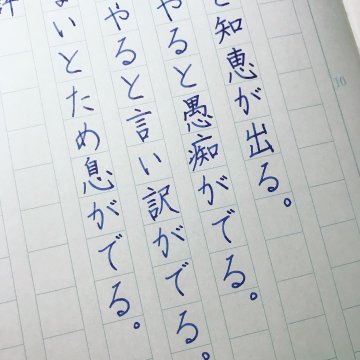 と知恵が出る。
やると愚痴がでる。
やると言い訳がでる。
ないとため息がでる。
10